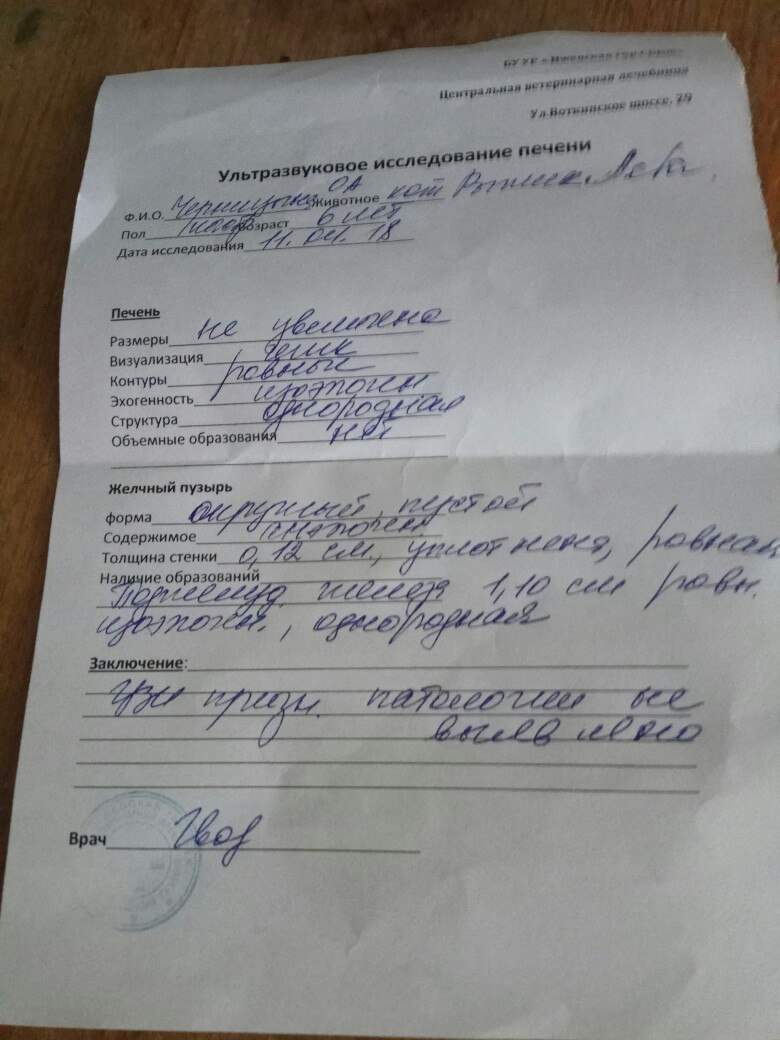 Центральная ветеринарная лечебница
Ул.Воткинское шоссе, 29
Ультразвуковое исследование печени
Ф.И.О. О А Животное кот Рыжик
Пол Возраст 6 лет
Дата исследования 11.04.18
Печень
Размеры не увеличена
Визуализация
Контуры ровные
Эхогенность изоэхоген
Структура однородная
Объемные образования нет
Желчный пузырь
форма округлый, пустой
Содержимое анэхоген
Толщина стенки 0,12 см, уплотнена, ровная
Наличие образований
Поджелуд. железа 1,10 см ровн.
изоэхоген., однородная
Заключение:
УЗИ призн. патологии не
выявлено
Врач